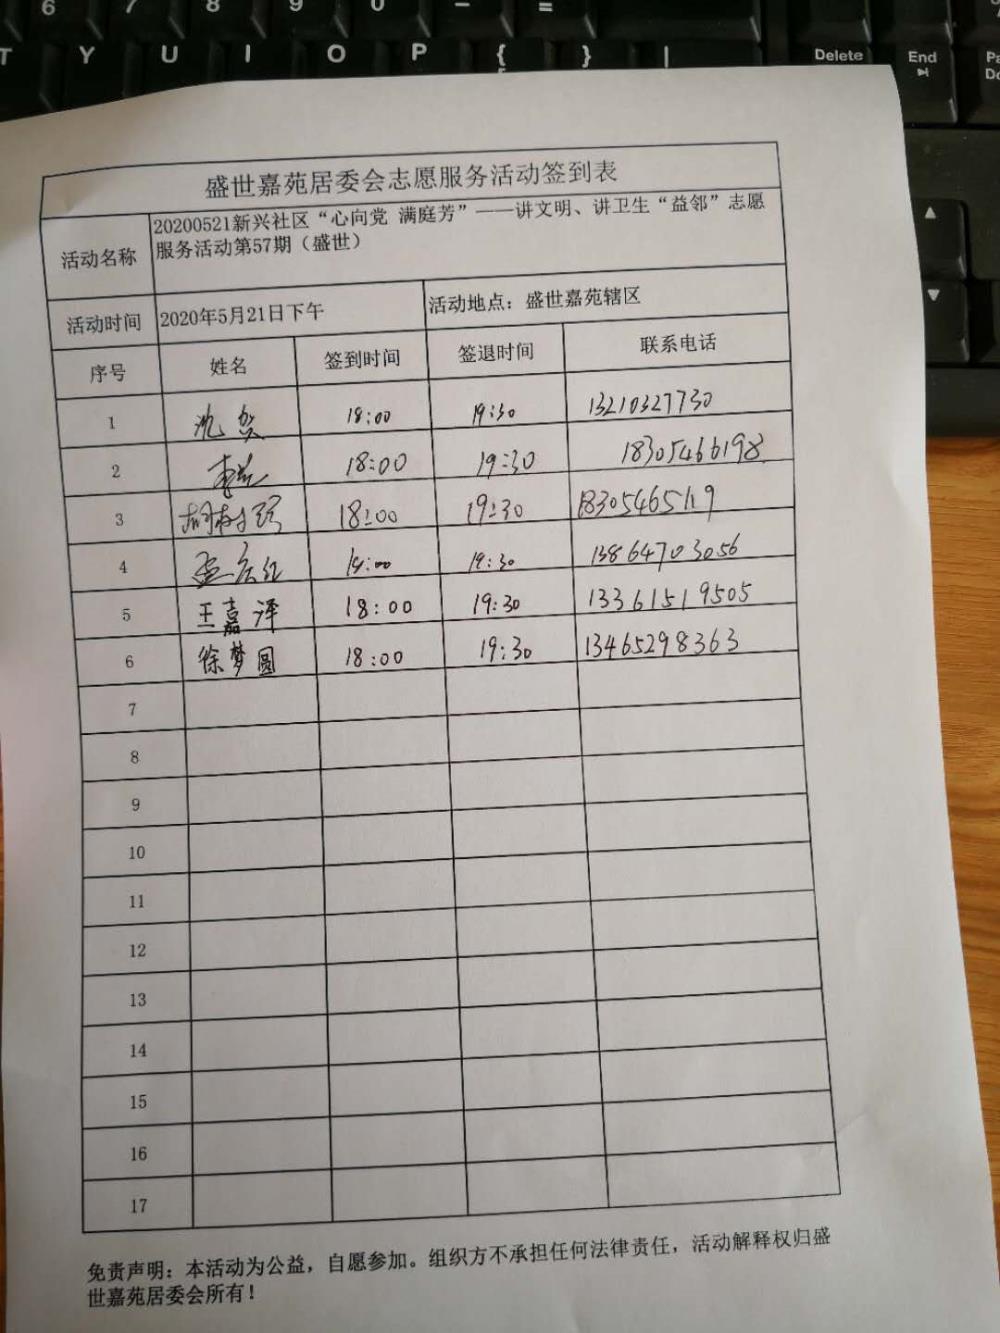 6 7 8 9 0 - =
T Y U I O P { } | Delete End
盛世嘉苑居委会志愿服务活动签到表
活动名称 20200521新兴社区“心向党 满庭芳”——讲文明、讲卫生“益邻”志愿
服务活动第57期（盛世）
活动时间 2020年5月21日下午 活动地点：盛世嘉苑辖区
序号 姓名 签到时间 签退时间 联系电话
1 18:00 19:30 13210327730
2 18:00 19:30 18305466198
3 18:00 19:30 18305465119
4 18:00 19:30 13864703056
5 王嘉泽 18:00 19:30 13361519505
6 徐梦圆 18:00 19:30 13465298363
7
8
9
10
11
12
13
14
15
16
17
免责声明：本活动为公益，自愿参加。组织方不承担任何法律责任，活动解释权归盛
世嘉苑居委会所有！